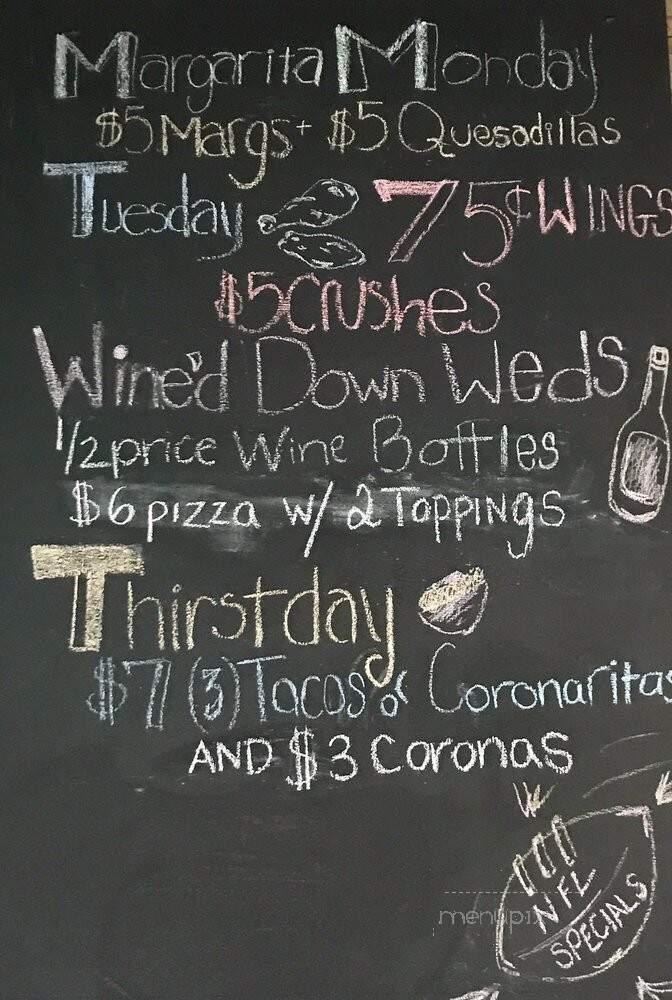 Margarita Monday
$5 Margs + $5 Quesadillas
Tuesday 75¢ WINGS
$5 Crushes
Wine'd Down Weds
1/2 price Wine Bottles
$6 pizza w/ 2 Toppings
Thirstday
$7 (3) Tacos or Coronaritas
AND $3 Coronas
NFL
SPECIALS
menupix